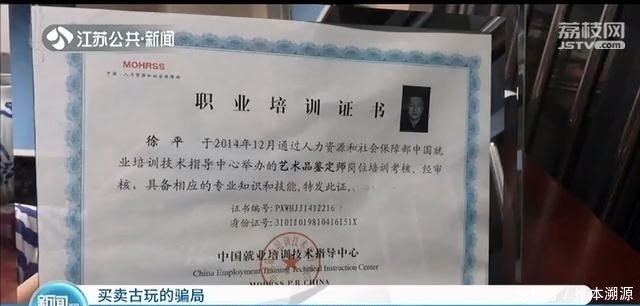 江苏公共·新闻
荔枝网
JSTV.com
MOHRSS
中国·人力资源和社会保障部
职业培训证书
徐平 于2014年12月通过人力资源和社会保障部中国就
业培训技术指导中心举办的艺术品鉴定师岗位培训考核、经审
核，具备相应的专业知识和技能，特发此证。
证书编号：PXWHJJ1412216
身份证号：31011019810416151X
中国就业培训技术指导中心
China Employment Training Technical Instruction Center
MOHRSS P.R. CHINA
新闻
买卖古玩的骗局
本溯源